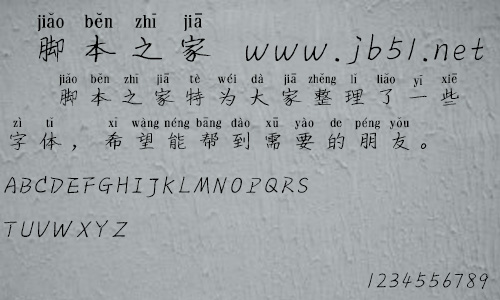 jiǎo běn zhī jiā
脚本之家 www.jb51.net
jiǎo běn zhī jiā tè wéi dà jiā zhěng lǐ liǎo yī xiē
脚本之家特为大家整理了一些
zì tǐ xī wàng néng bāng dào xū yào de péng yǒu
字体，希望能帮到需要的朋友。
ABCDEFGHIJKLMNOPQRS
TUVWXYZ
12345556789